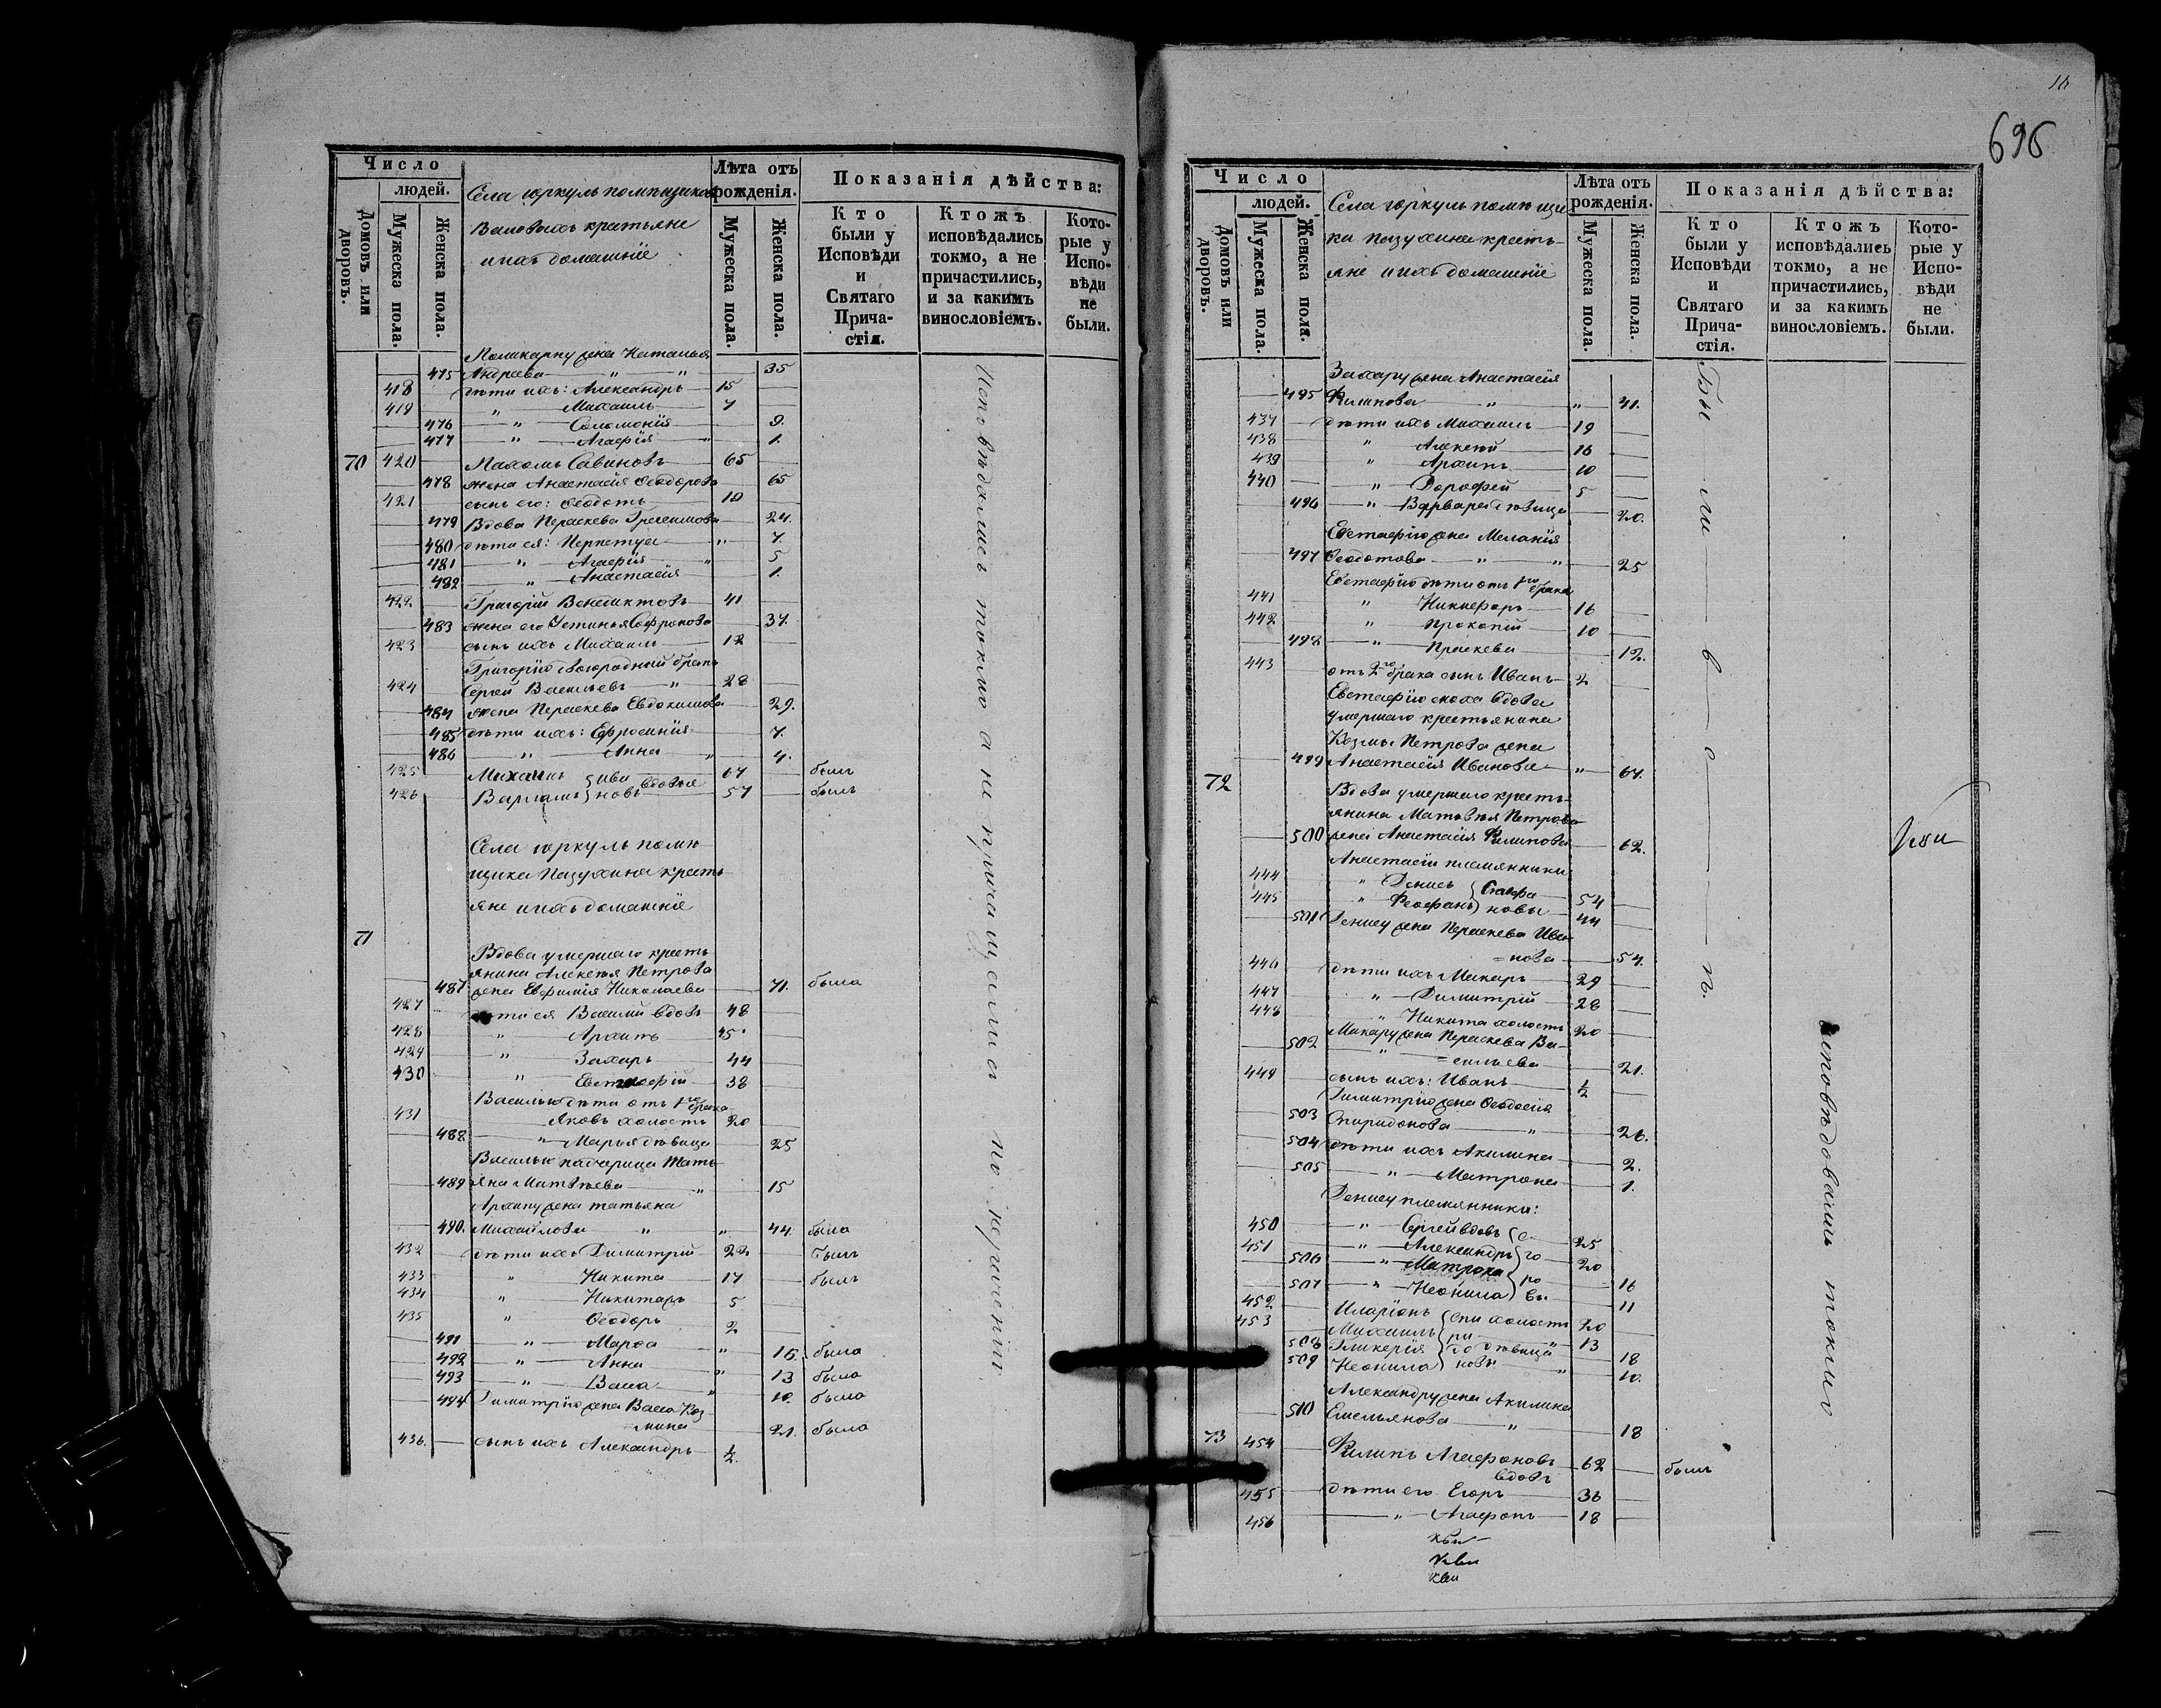 Число
людей.
Домовъ или дворовъ.
Мужеска пола.
Женска пола.
Села юркуль помѣщиковъ
Валовыхъ крестьяне
и ихъ домашніе
Лѣта отъ рожденія.
Мужеска пола.
Женска пола.
Показанія дѣйства:
Кто были у Исповѣди и Святаго Причастія.
Ктожъ исповѣдались токмо, а не причастились, и за какимъ винословіемъ.
Которые у Исповѣди не были.
Поликарпу жена Наталья
475 Андреева " " 35
418 дѣти ихъ: Александръ 15
419 " Михаилъ 7
476 " Соломонія 9.
477 " Агафія " 1.
70 420 Пахомъ Савиновъ 65
478 жена Анастасія Ѳеодорова 65
421 сынъ его: Ѳеодотъ 19
479 Вдова Параскева Герасимова 24.
480 дѣти ея: Перпетуа " 7.
481 " Агафія " 5
482 " Анастасія 1.
422 Григорій Венедиктовъ 41
483 жена его Устинья Софронова 37.
423 сынъ ихъ Михаилъ 12
Григорію двоюродный братъ
424 Сергей Васильевъ " 28
484 жена Параскева Евдокимова 29.
485 дѣти ихъ: Ефросинія 7.
486 " Анна " 4.
425 Михаилъ } Ива вдовые 67 былъ
426 Варламъ } новъ 57 былъ
Села юркуль помѣ
щика Пазухина кресть
яне и ихъ домашніе
71
Вдова умершаго кресть
янина Алексѣя Петрова
487 жена Евфимія Николаева 71. была
427 дѣти ея Василій вдовъ 48
428 " Архипъ 45
429 " Захаръ 44
430 " Евстафій 38
Василью дѣти отъ 1го брака
431 Яковъ холостъ 20
488 " Марья дѣвица 25
Василью падчерица Тать
489 яна Матвѣева " 15
Архипу жена татьяна
490. Михайлова " " 44. была
432 дѣти ихъ Димитрій 22 былъ
433 " Никита 17 былъ
434 " Никитаръ 5
435 " Ѳеодоръ 2
491 " Марѳа " 16. была
492 " Анна " 13 была
493 " Васса " 10. была
494 Димитрію жена Васса Коз
=мина 21. была
436. сынъ ихъ Александръ ½.
Исповѣдались токмо а не причащались по нерачению.
16
696
Число
людей.
Домовъ или дворовъ.
Мужеска пола.
Женска пола.
Села юркуль помѣщи
ка пазухина кресть-
яне и ихъ домашніе
Лѣта отъ рожденія.
Мужеска пола.
Женска пола.
Показанія дѣйства:
Кто были у Исповѣди и Святаго Причастія.
Ктожъ исповѣдались токмо, а не причастились, и за какимъ винословіемъ.
Которые у Исповѣди не были.
Захару жена Анастасія
495 Филипова " " 41.
437 дѣти ихъ Михаилъ 19
438 " Алексѣй 16
439 " Архипъ 10
440 " Дорофей 5
496 " Варвара дѣвица 20.
Евстафію жена Меланія
497 Ѳеодотова " " 25
Евстафію дѣти отъ 1го брака
441 " Никифоръ 16
442 " Прокопій 10
498 " Праскева 12.
443 отъ 2го брака сынъ Иванъ 2
Евстафію сноха вдова
умершаго крестьянина
Козмы Петрова жена
499 Анастасія Иванова " 67.
72
Вдова умершаго кресть-
янина Матвѣя Петрова
500 жена Анастасія Филипова 62.
Анастасіи племянники
444 " Денисъ } Агафо 54
445 " Феофанъ } новы 44
501 Денису жена Параскева Ива
=нова 54.
446 дѣти ихъ Макаръ 29
447 " Димитрій 28
448 " Никита холостъ 20
Макару жена Параскева Ва-
502 " =сильева 21.
449 сынъ ихъ: Иванъ ½
Димитрію жена Ѳеодосія
503 Спиридонова " 26.
504 дѣти ихъ Акилина 2.
505 " Матрона 1.
Денису племянники:
450 " Сергей вдовъ 25
451 " Александръ 20
506 " Матрона 16
507 " Неонила 11
452 Иларіонъ } Спи холостъ 20
453 Михаилъ } ри " 13
508 Гликерія } до дѣвица 18
509 Неонила } новы " 10.
Александру жена Акилина
510 Емельянова " 18
73 454 Филипъ Агафоновъ 62 былъ
вдовъ
455 дѣти его Егоръ 36
456 " Агафонъ 18
исповѣдовались токмо